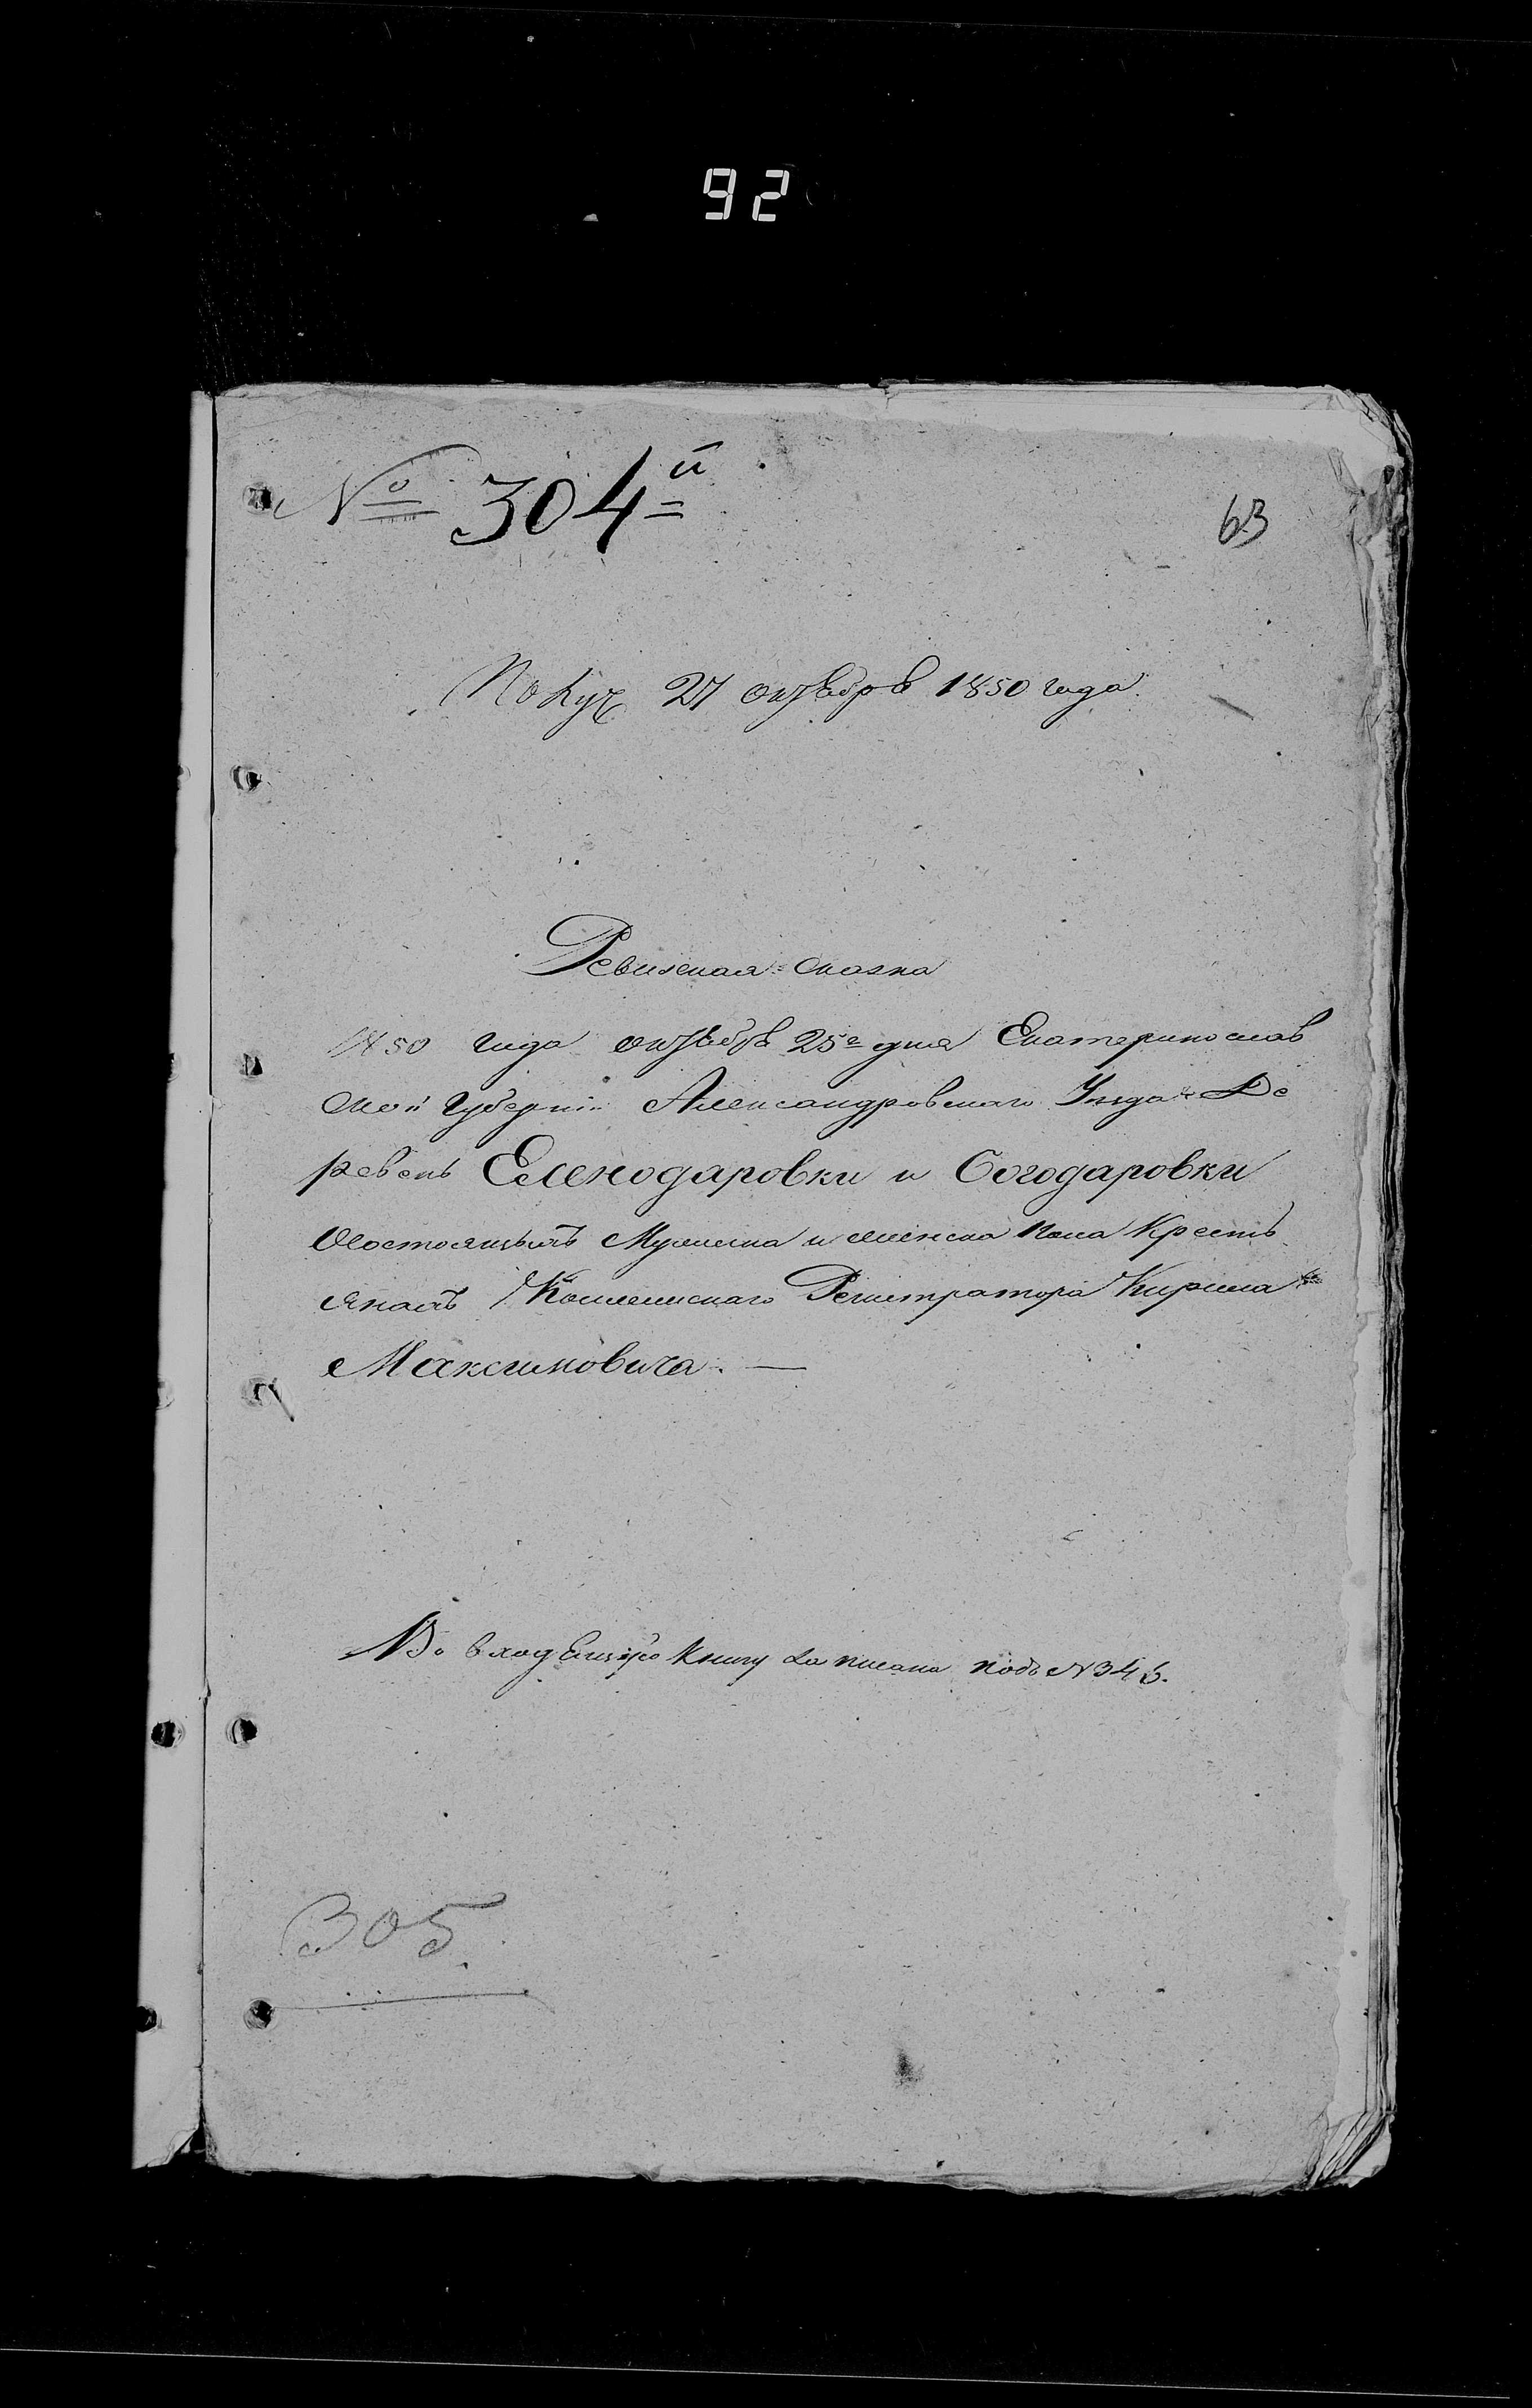 92
№ 304й
63
Получ 27 октября 1850 года.
Ревизская сказка
1850 года октября 25го дня Екатеринослав
ской Губернии Александровского Уезда Де
ревень Еленодаровки и Богодаровки
О состоящихъ Мужеска и женска пола Кресть
янахъ Коллежскаго Регистратора Кирила
Максимовича. —
Во входящую книгу записана подъ N 346.
305